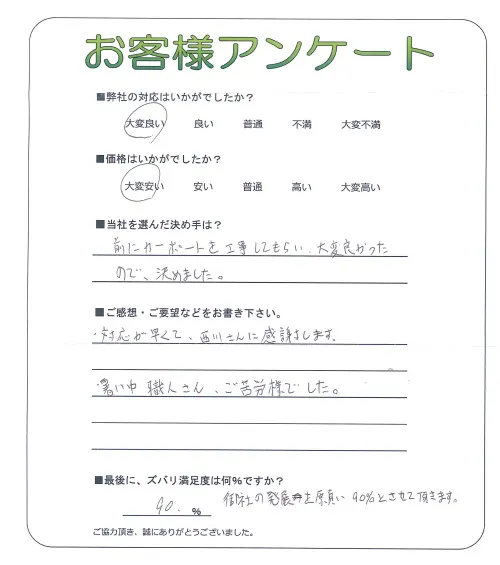 お客様アンケート
■弊社の対応はいかがでしたか?
大変良い 良い 普通 不満 大変不満
■価格はいかがでしたか?
大変安い 安い 普通 高い 大変高い
■当社を選んだ決め手は?
前にカーポートを工事してもらい、大変良かった
ので、決めました。
■ご感想・ご要望などをお書き下さい。
・対応が早くて、西川さんに感謝します。
・暑い中 職人さん、ご苦労様でした。
■最後に、ズバリ満足度は何%ですか?
90. %
御社の発展を願い 90%とさせて頂きます。
ご協力頂き、誠にありがとうございました。